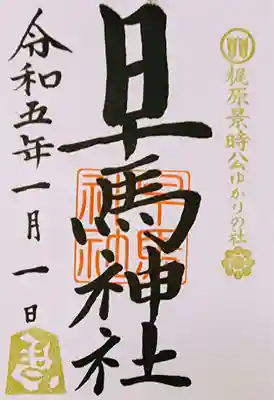 梶原景時公ゆかりの社
早馬神社
早馬
神社
令和五年一月一日